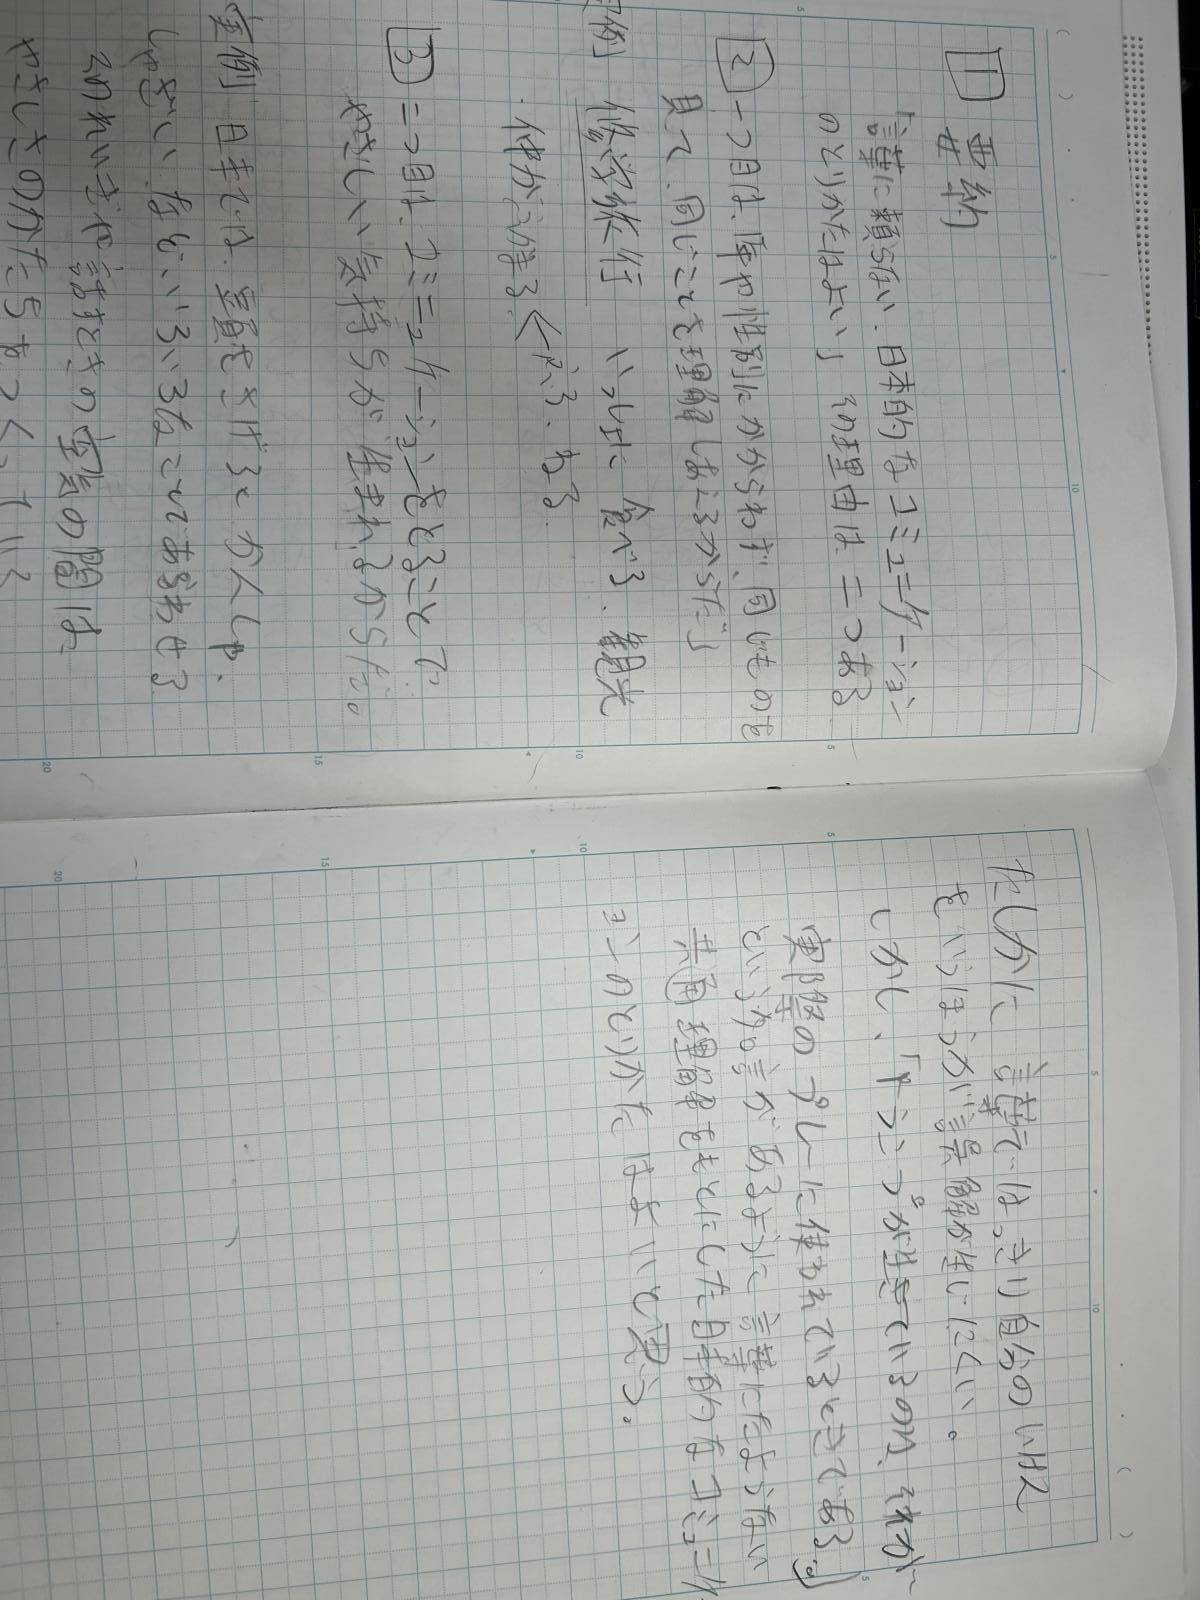 1 要約
「言葉に頼らない、日本的なコミュニケーション
のとりかたはよい」 その理由は二つある
2 一つ目は、年や性別にかかわらず、同じものを
見て、同じことを理解しあえるからだ」
実例 修学旅行 いっしょに食べる、観光
・仲が深まる
3 二つ目は、コミュニケーションをとることで
やさしい気持ちが生まれるからだ。
実例 日本では、重箱をさげると かくしゃ、
しゃざい、などいろいろなことであらわせる
そのれいをや話すときの空気の間は
やさしさのかたちだ
たしかに、言葉ではっきり自分のいけん
をいうほうが誤解が生じにくい。
しかし、「チュンプが生きているのは、それが
実際のプレーに使われているときである」
という名言があるように言葉にたよらない
共通理解をもとにした日本的なコミュニケー
ションのとりかたはよいと思う。